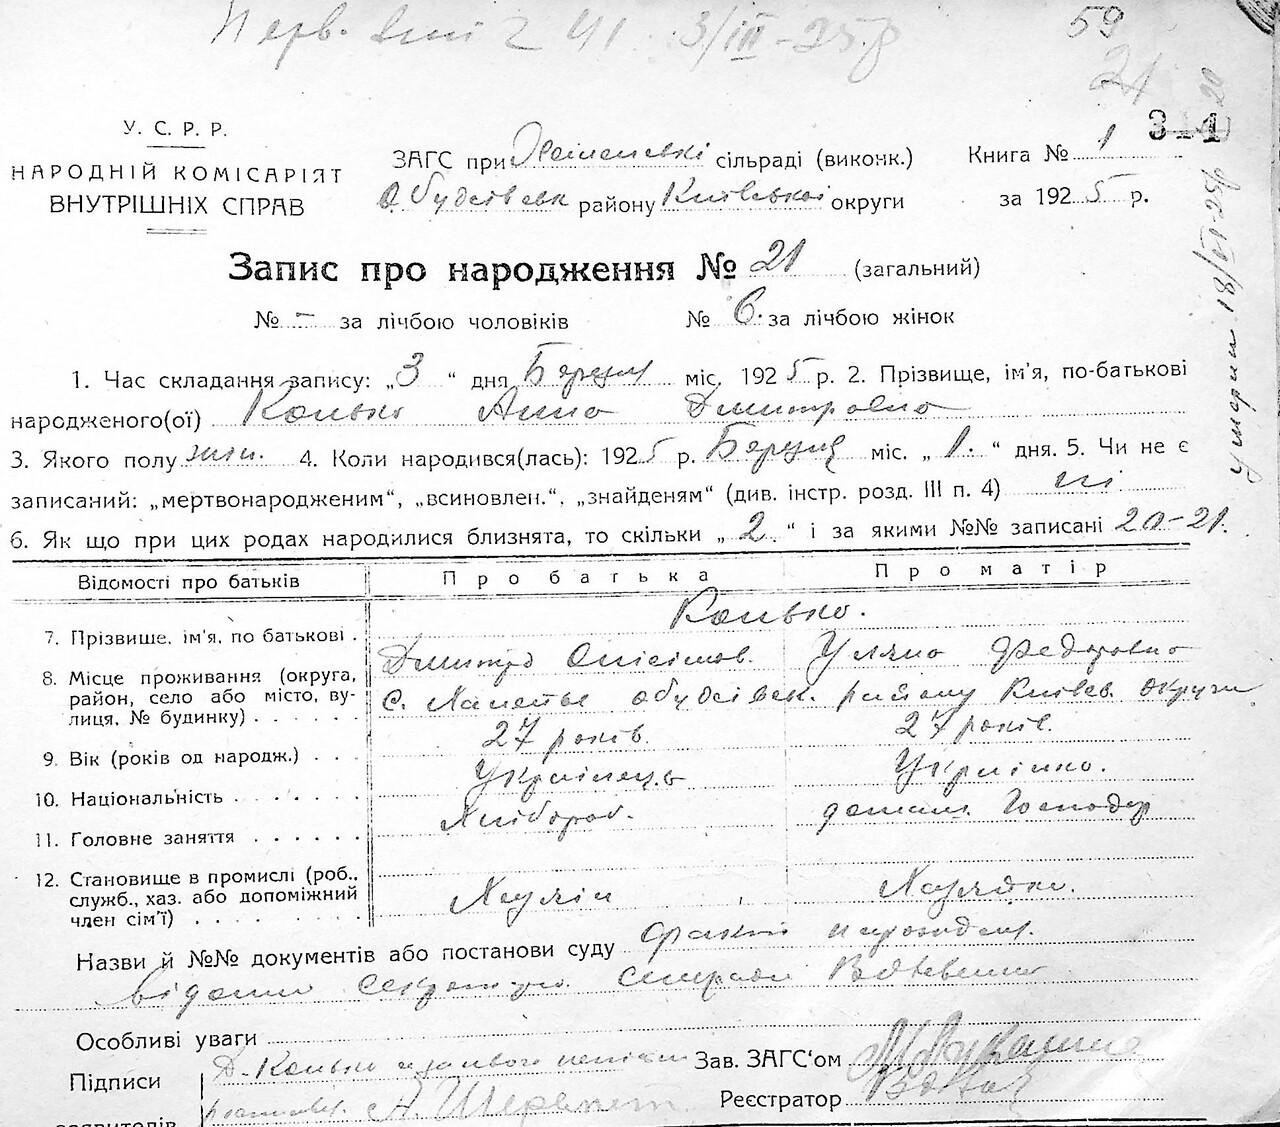 3/III-25 р
59
21
У. С. Р. Р.
НАРОДНІЙ КОМІСАРІЯТ
ВНУТРІШНІХ СПРАВ
ЗАГС при сільраді (виконк.)
району Київської округи
Книга № 1
за 1925 р.
3-4
Запис про народження № 21 (загальний)
№ - за лічбою чоловіків № 6. за лічбою жінок
1. Час складання запису: „3“ дня Березня міс. 1925 р. 2. Прізвище, ім'я, по-батькові
народженого(ої) Конько Анна Дмитровна
3. Якого полу жін. 4. Коли народився(лась): 1925 р. Березня міс. „1.“ дня. 5. Чи не є
записаний: „мертвонародженим“, „всиновлен.“, „знайденям“ (див. інстр. розд. III п. 4) ні
6. Як що при цих родах народилися близнята, то скільки „2“ і за якими №№ записані 20-21.
Відомості про батьків Про батька Про матір
Конько.
7. Прізвище, ім'я, по батькові . Дмитро Онісімов. Уляна Федоровна
8. Місце проживання (округа,
район, село або місто, ву-
лиця, № будинку) . . . . . . с. району Київс. округи
9. Вік (років од народж.) . . . 27 років. 27 років.
10. Національність . . . . . . . Українець Українка.
11. Головне заняття . . . . . . Хлібороб. домаш. Господар
12. Становище в промислі (роб.,
служб., хаз. або допоміжний
член сім'ї) . . . . . . . . . Хазяїн Хазяйка.
Назви й №№ документів або постанови суду факт народжен.
відомий секретарю сільради
Особливі уваги
Підписи Д. Конько
заявителів А. Шеремет
Зав. ЗАГС'ом
Реєстратор